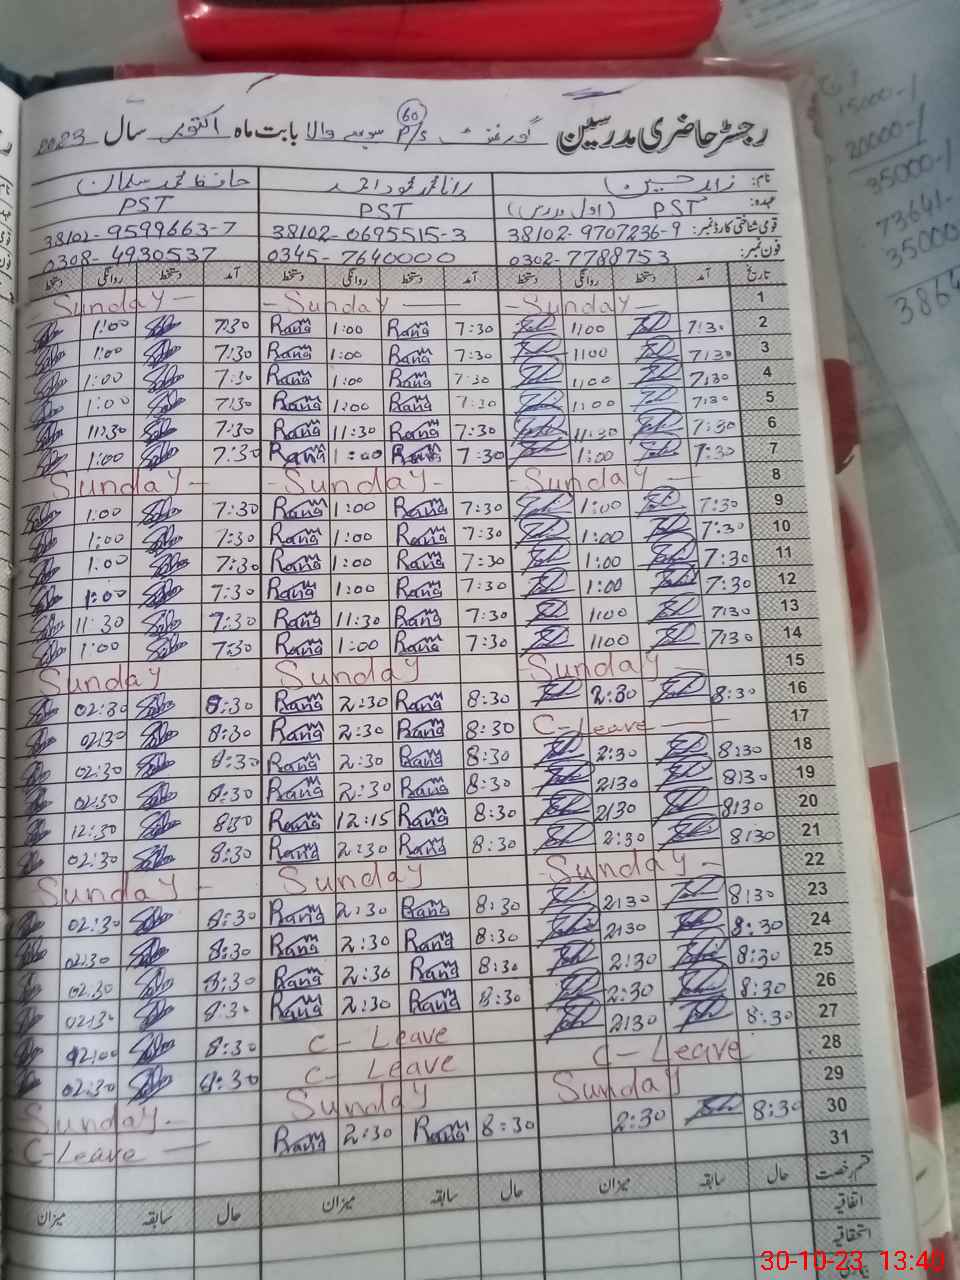 رجسٹر حاضری مدرسین گورنمنٹ 60 P/s والا بابت ماہ اکتوبر سال 2023
نام: زاہد حسین رانا محمد محمود احمد حافظ محمد سلمان
عہدہ: PST (اول مدرس) PST PST
قومی شناختی کارڈ نمبر: 38102-9707236-9 38102-0695515-3 38102-9599663-7
فون نمبر: 0302-7788753 0345-7640000 0308-4930537
تاریخ آمد دستخط روانگی دستخط آمد دستخط روانگی دستخط آمد دستخط روانگی دستخط
1 Sunday Sunday Sunday
2 7:30 1:00 7:30 Rana 1:00 Rana 7:30 1:00
3 7:30 1:00 7:30 Rana 1:00 Rana 7:30 1:00
4 7:30 1:00 7:30 Rana 1:00 Rana 7:30 1:00
5 7:30 1:00 7:30 Rana 1:00 Rana 7:30 1:00
6 7:30 11:30 7:30 Rana 11:30 Rana 7:30 11:30
7 7:30 1:00 7:30 Rana 1:00 Rana 7:30 1:00
8 Sunday Sunday Sunday
9 7:30 1:00 7:30 Rana 1:00 Rana 7:30 1:00
10 7:30 1:00 7:30 Rana 1:00 Rana 7:30 1:00
11 7:30 1:00 7:30 Rana 1:00 Rana 7:30 1:00
12 7:30 1:00 7:30 Rana 1:00 Rana 7:30 1:00
13 7:30 1:00 7:30 Rana 11:30 Rana 7:30 11:30
14 7:30 1:00 7:30 Rana 1:00 Rana 7:30 1:00
15 Sunday Sunday Sunday
16 8:30 2:30 8:30 Rana 2:30 Rana 8:30 02:30
17 C-Leave 8:30 Rana 2:30 Rana 8:30 02:30
18 8:30 2:30 8:30 Rana 2:30 Rana 8:30 02:30
19 8:30 2:30 8:30 Rana 2:30 Rana 8:30 02:30
20 8:30 2:30 8:30 Rana 12:15 Rana 8:30 12:30
21 8:30 2:30 8:30 Rana 2:30 Rana 8:30 02:30
22 Sunday Sunday Sunday
23 8:30 2:30 8:30 Rana 2:30 Rana 8:30 02:30
24 8:30 2:30 8:30 Rana 2:30 Rana 8:30 02:30
25 8:30 2:30 8:30 Rana 2:30 Rana 8:30 02:30
26 8:30 2:30 8:30 Rana 2:30 Rana 8:30 02:30
27 8:30 2:30 C-Leave 8:30 02:00
28 C-Leave C-Leave 8:30 02:30
29 Sunday Sunday Sunday
30 8:30 2:30 8:30 Rana 2:30 Rana C-Leave
31
قسم رخصت حال سابقہ میزان حال سابقہ میزان حال سابقہ میزان
اتفاقیہ
استحقاقیہ
15000-/
20000-/
35000-/
73641-
35000
3864
30-10-23 13:40